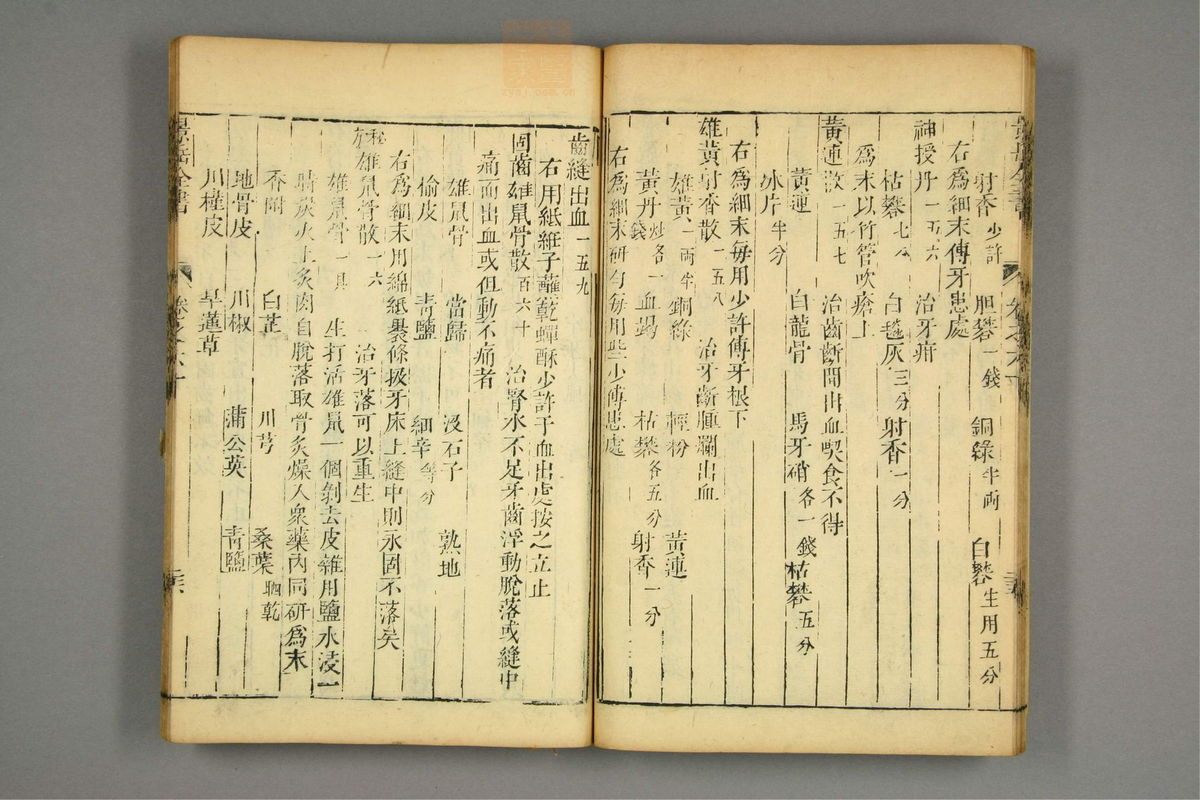 景岳全書
卷之六十
射香少許 胆礬一錢 銅綠半両 白礬生用五分
右爲細末傅牙患處
神授丹一五六 治牙疳
枯礬七分 白毯灰三分 射香一分
爲末以竹管吹瘡上
黃連散一五七 治齒齗間出血喫食不得
黃連 白龍骨 馬牙硝各一錢 枯礬五分
氷片半分
右爲細末毎用少許傅牙根下
雄黃射香散一五八 治牙齗腫爛出血
雄黃一両半 銅綠 輕粉 黃連
黃丹炒各一錢 血竭 枯礬各五分 射香一分
右爲細末研勻每用些少傅患處
齒縫出血一五九
右用紙紝子蘸乾蟬酥少許于血出處按之立止
固齒雄鼠骨散百六十 治腎水不足牙齒浮動脫落或縫中
痛而出血或但動不痛者
雄鼠骨 當歸 沒石子 熟地
榆皮 青鹽 細辛等分
右爲細末用綿紙裹條扱牙床上縫中則永固不落矣
秘方雄鼠骨散一六 治牙落可以重生
雄鼠骨一具 生打活雄鼠一個剝去皮雜用鹽水浸一
時炭火上炙肉自脫落取骨炙燥入衆藥內同研爲末
香附 白芷 川芎 桑葉晒乾
地骨皮 川椒 蒲公英 青鹽
川槿皮 旱蓮草
景岳全書
卷之六十